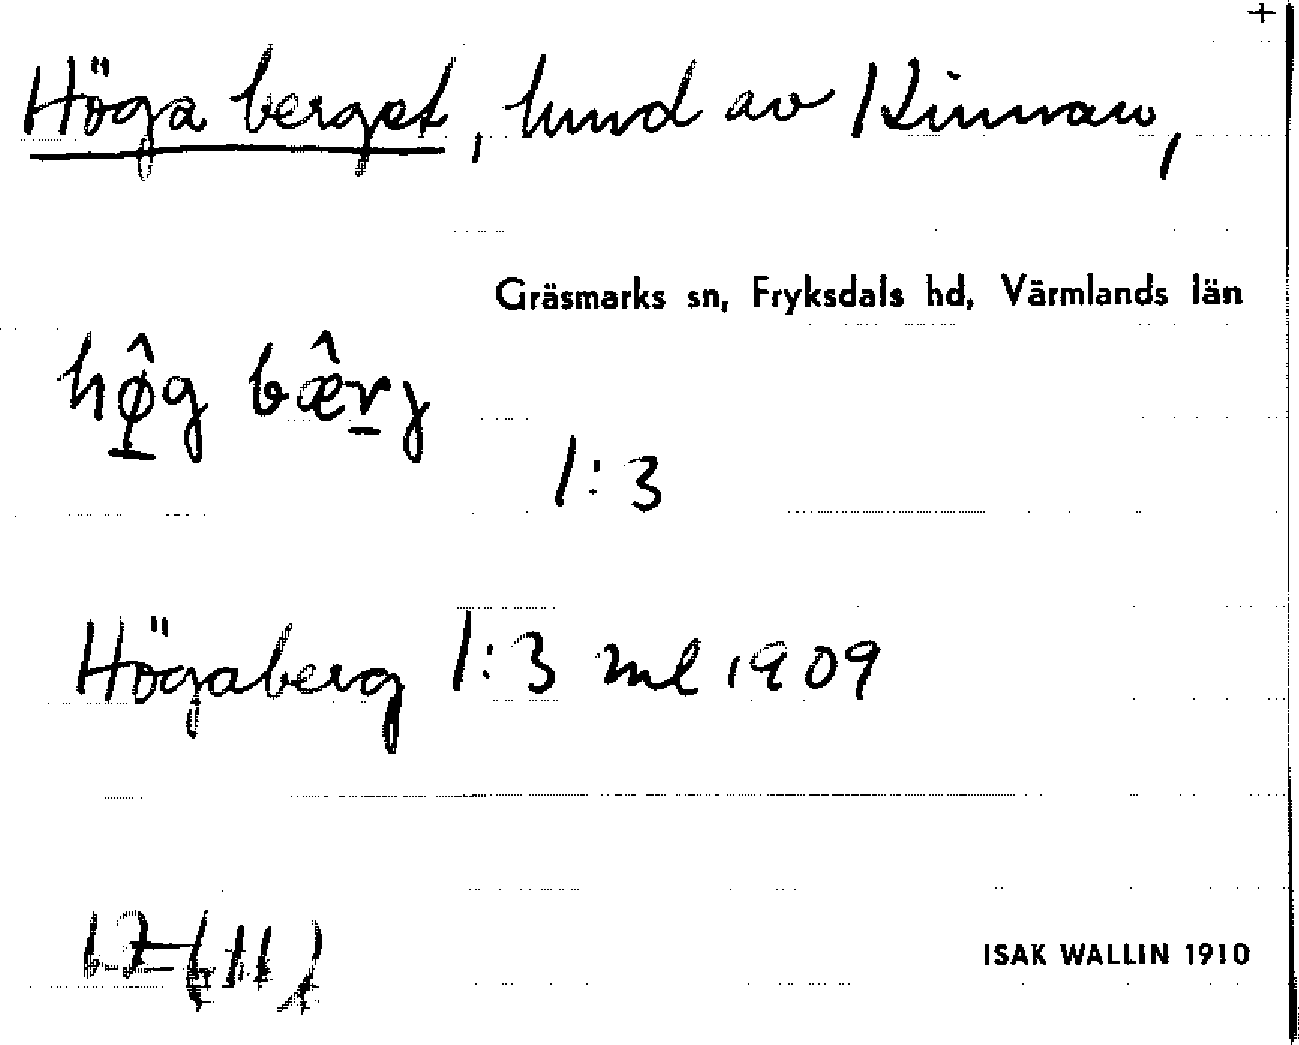 +
Höga berget, hmd av Kinnau,
Gräsmarks sn, Fryksdals hd, Värmlands län
hø̂g bæ̂rj
1:3
Högaberg 1:3 ml 1909
ISAK WALLIN 1910